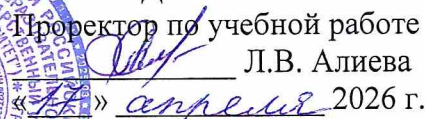 Проректор по учебной работе
Л.В. Алиева
«17» апреля 2026 г.